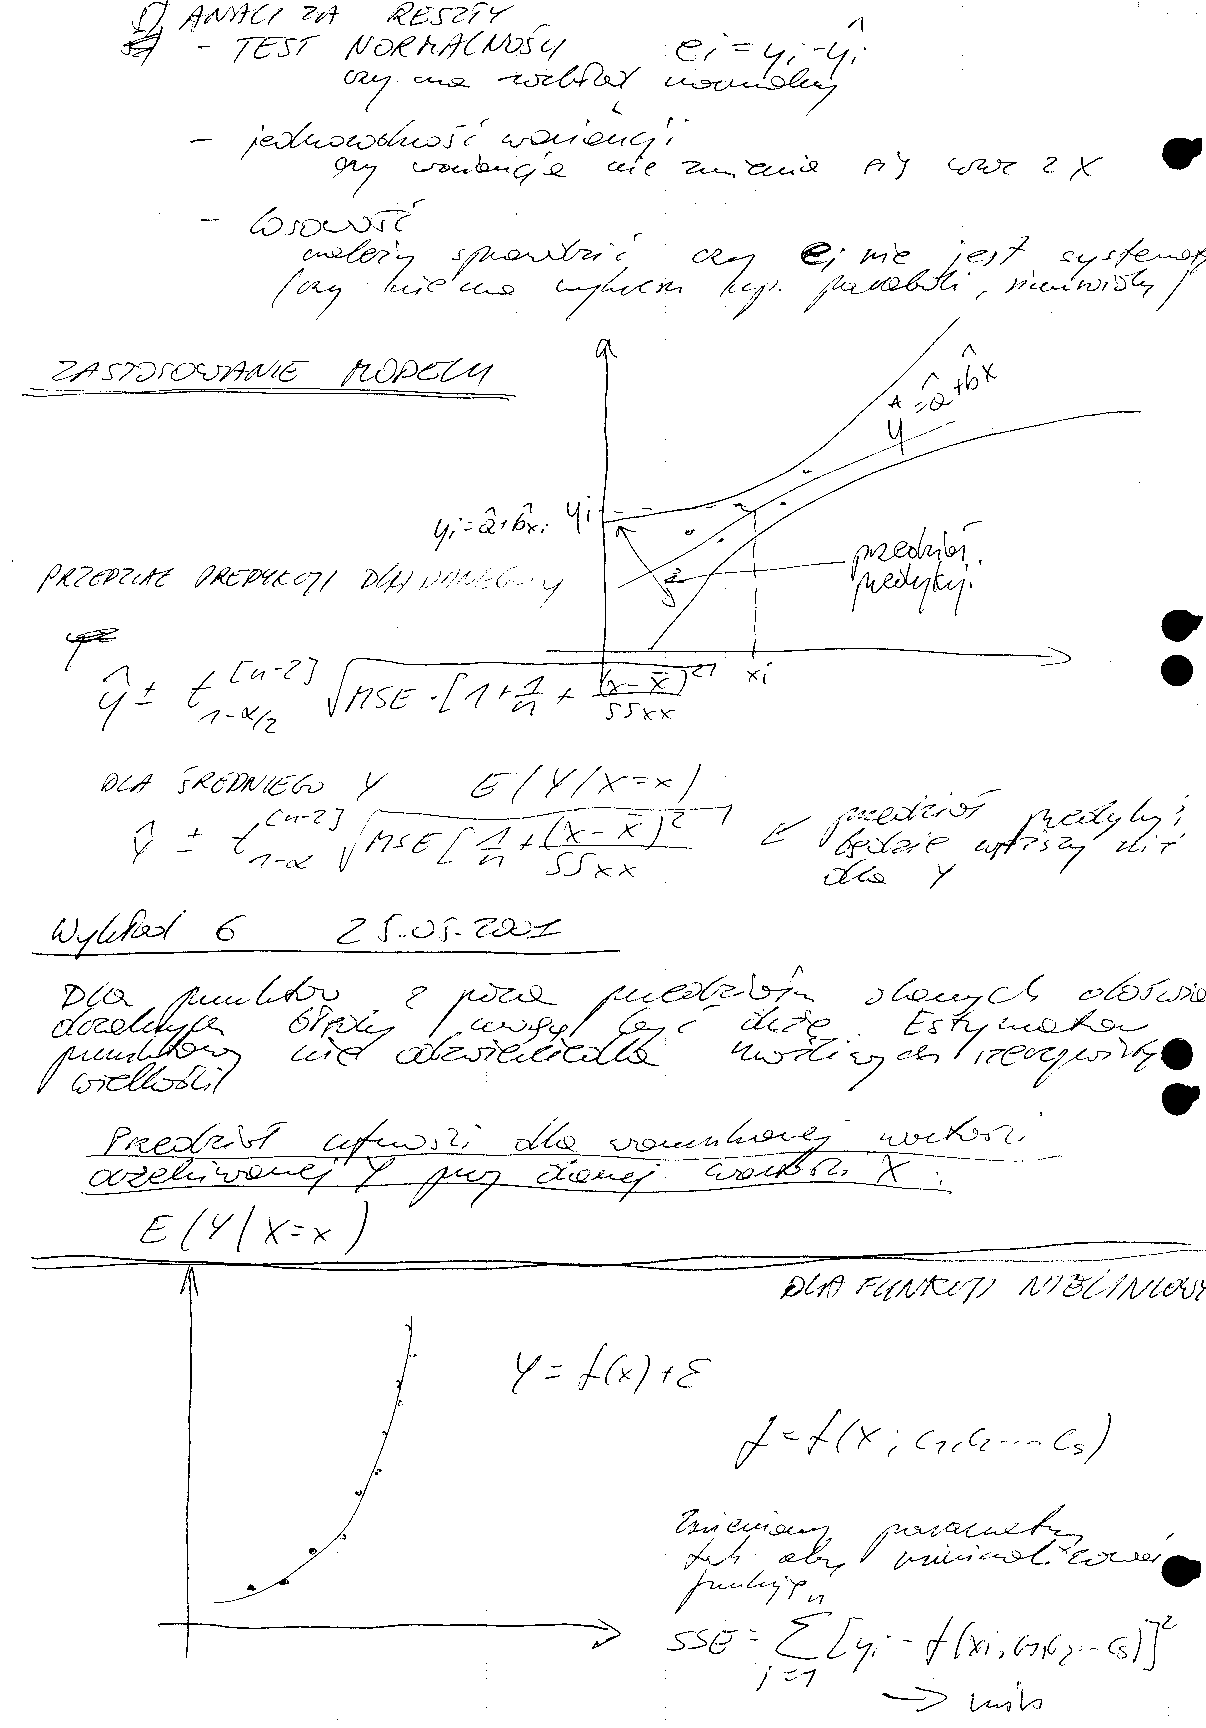 ANALIZA RESZTY
- TEST NORMALNOŚCI ei = yi - ŷi
czy ma rozkład normalny
- jednorodność wariancji
czy wariancja nie zmienia się wraz z X
- losowość
należy sprawdzić czy ei nie jest systemat
(czy nie ma wykresu np. paraboli, sinusoidy)
ZASTOSOWANIE MODELU
ŷ = â + b̂x
yi = â + b̂xi yi
przedział
predykcji
PRZEDZIAŁ PREDYKCJI DLA DANEGO y
xi
ŷ ± t [n-2] 1-α/2 √MSE · [1 + 1/n + (x - x̄)²/SSxx]
DLA ŚREDNIEGO Y E(Y/X=x)
ŷ ± t [n-2] 1-α √MSE [1/n + (x - x̄)²/SSxx]
przedział predykcji
będzie węższy niż
dla Y
Wykład 6 25.05.2001
Dla punktów z poza przedziału danych doświa
dczalnych błędy mogą być duże. Estymator
punktowy nie odzwierciedla możliwych rzeczywisty
wielkości
Przedział ufności dla warunkowej wartości
oczekiwanej Y przy danej wartości X.
E(Y|X=x)
DLA FUNKCJI NIELINIOWY
Y = f(x) + ε
f = f(x; c1, c2 ... cs)
Zmieniamy parametry
tak aby minimalizować
funkcję
SSE = Σ i=1 n [yi - f(xi, c1, c2 ... cs)]²
→ min